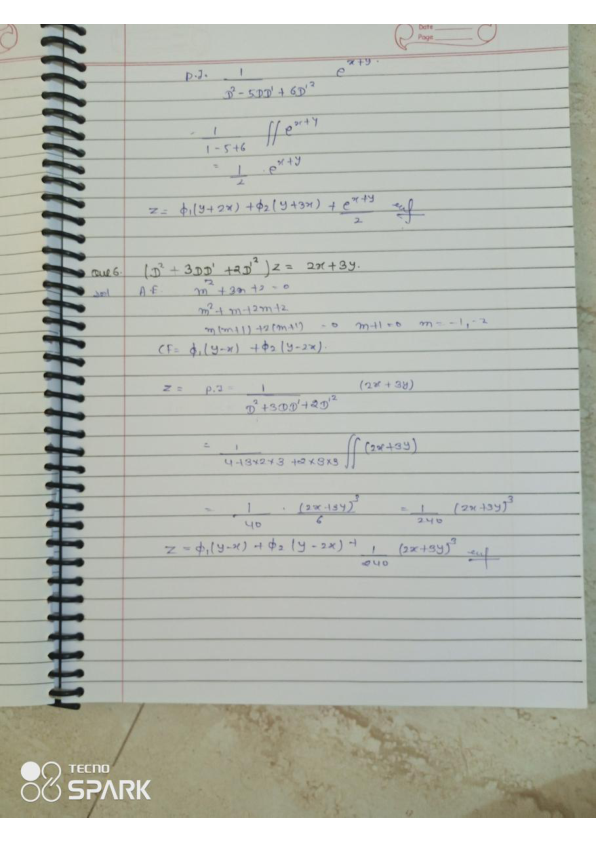 Date
Page
P.I. 1/(D² - 5DD' + 6D'²) e^(x+y)
= 1/(1-5+6) ∬ e^(x+y)
= 1/2 e^(x+y)
Z = ϕ₁(y+2x) + ϕ₂(y+3x) + e^(x+y)/2
Que 6. (D² + 3DD' + 2D'²) Z = 2x + 3y.
Sol A.E. m² + 3m + 2 = 0
m² + m + 2m + 2
m(m+1) + 2(m+1) = 0 m+1 = 0 m = -1, -2
CF = ϕ₁(y-x) + ϕ₂(y-2x).
Z = P.I = 1/(D² + 3DD' + 2D'²) (2x + 3y)
= 1/(4+3×2×3+2×3×3) ∬ (2x+3y)
= 1/40 · (2x+3y)³/6 = 1/240 (2x+3y)³
Z = ϕ₁(y-x) + ϕ₂(y-2x) + 1/240 (2x+3y)³
TECNO
SPARK